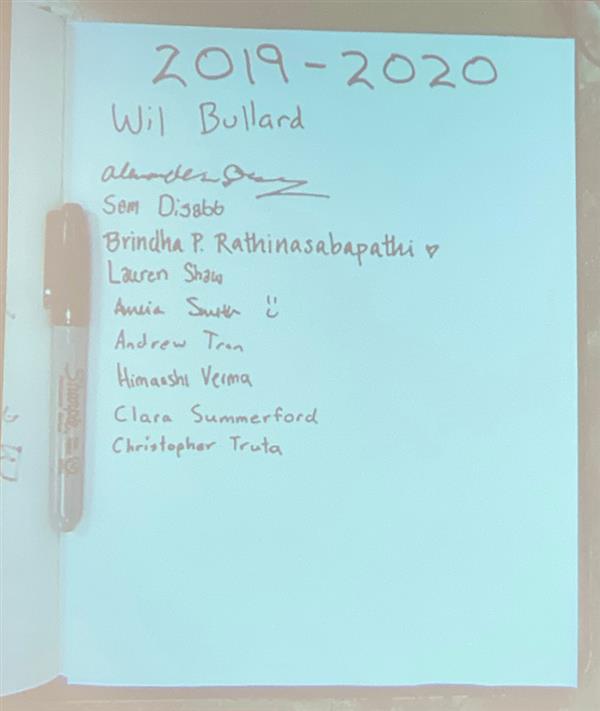 2019-2020
Wil Bullard
Sam Disabb
Brindha P. Rathinasabapathi ♥
Lauren Shaw
Smith
Andrew Tran
Himanshi Verma
Clara Summerford
Christopher Truta
Sharpie